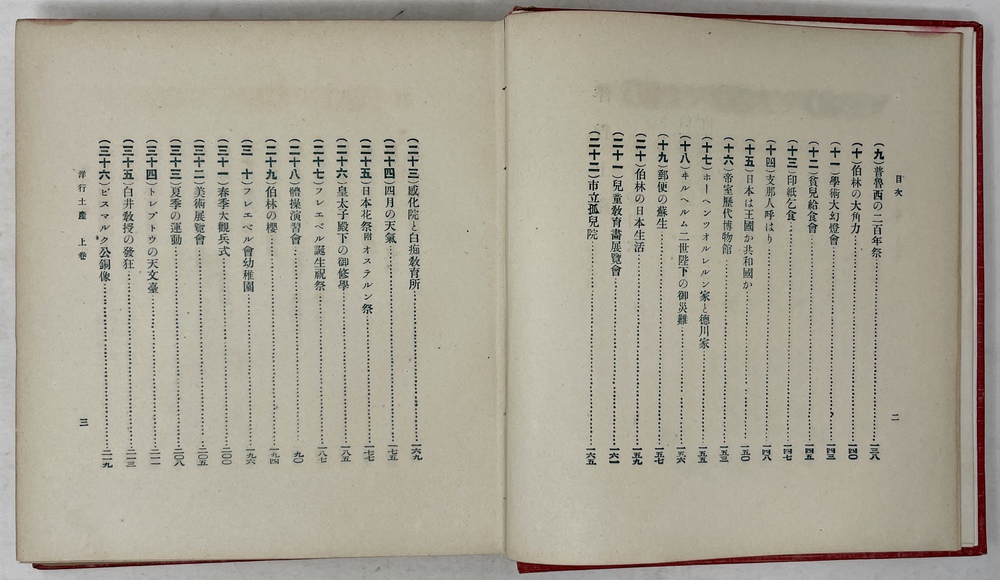 目次
(九)普魯西の二百年祭…一三八
(十)伯林の大角力…一四〇
(十一)學術大幻燈會…一四三
(十二)貧兒給食會…一四五
(十三)印紙乞食…一四七
(十四)支那人呼はり…一四八
(十五)日本は王國か共和國か…一五〇
(十六)帝室歷代博物館…一五三
(十七)ホーヘンツオルレルン家と德川家…一五五
(十八)ヰルヘルム二世陛下の御災難…一五六
(十九)郵便の蘇生…一五七
(二十)伯林の日本生活…一五九
(二十一)兒童教育畫展覽會…一六一
(二十二)市立孤兒院…一六五
二
(二十三)感化院と白痴敎育所…一六九
(二十四)四月の天氣…一七五
(二十五)日本花祭附オステルン祭…一七七
(二十六)皇太子殿下の御修學…一八五
(二十七)フレエベル誕生祝祭…一八七
(二十八)體操演習會…一九〇
(二十九)伯林の櫻…一九四
(三十)フレエベル會幼稚園…一九六
(三十一)春季大觀兵式…二〇〇
(三十二)美術展覽會…二〇五
(三十三)夏季の運動…二〇八
(三十四)トレプトウの天文臺…二一一
(三十五)白井敎授の發狂…二一三
(三十六)ビスマルク公銅像…二一九
洋行土產 上卷
三